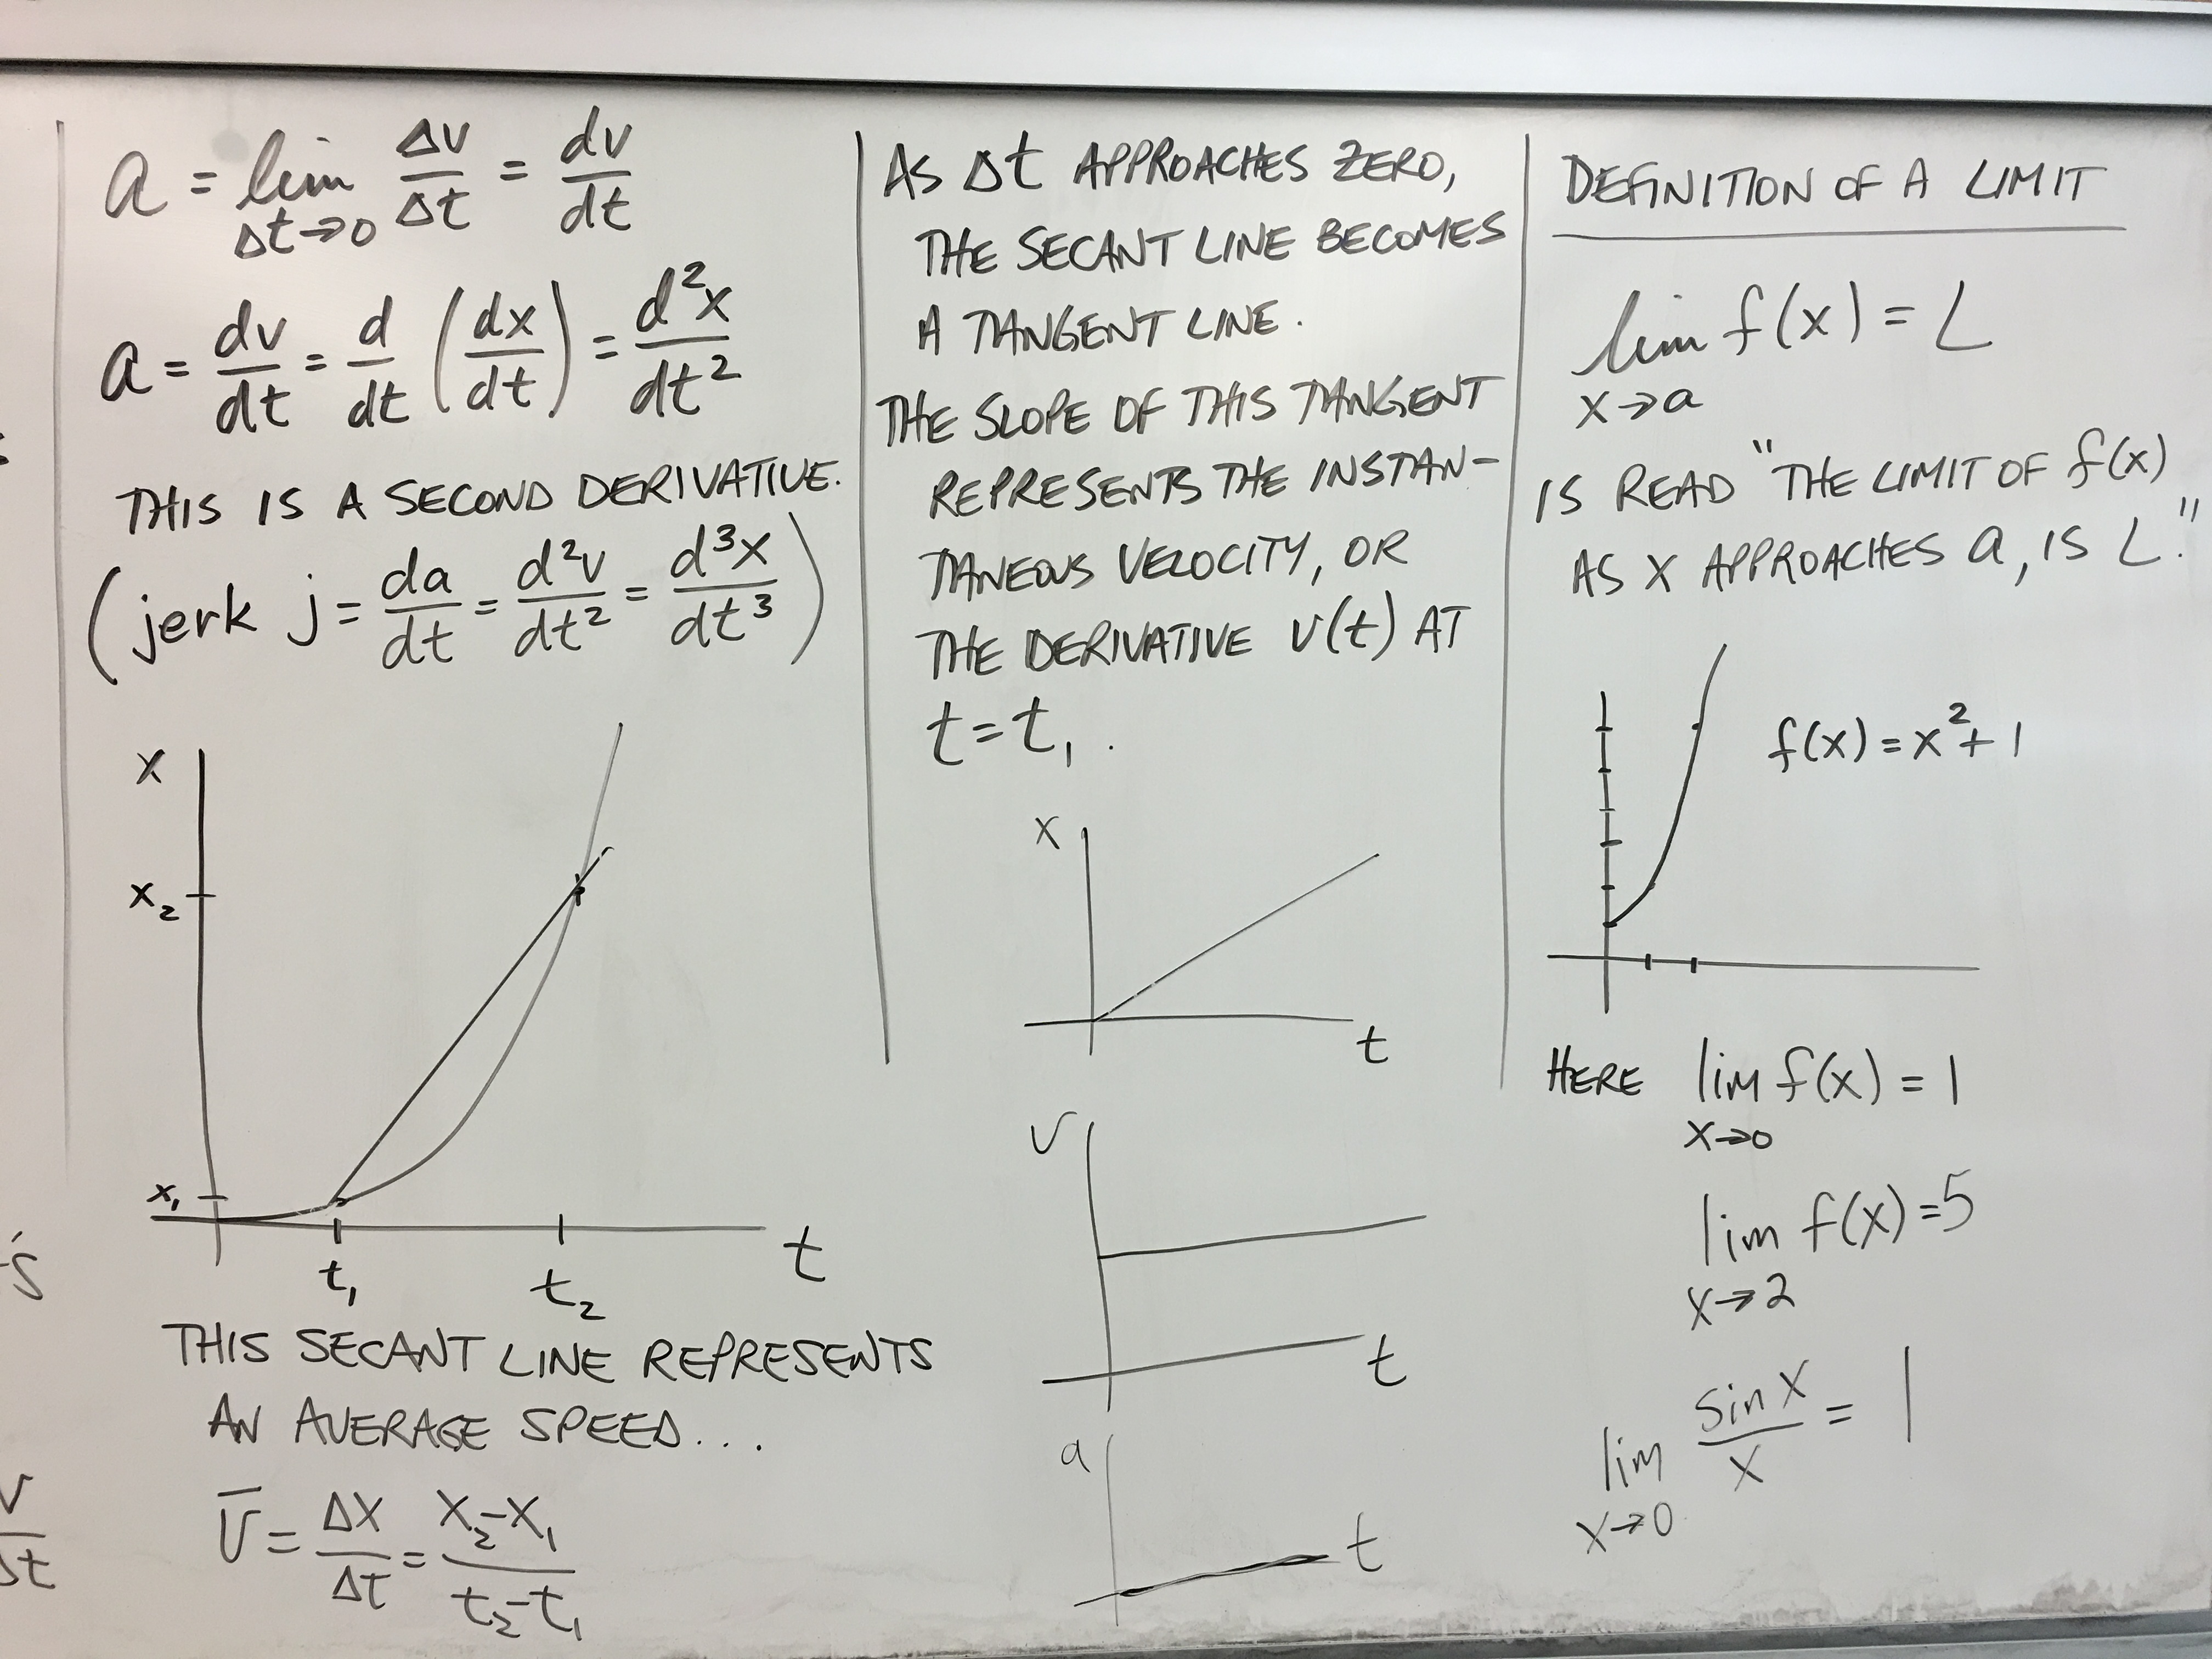 a = lim Δt→0 Δv/Δt = dv/dt
a = dv/dt = d/dt (dx/dt) = d²x/dt²
THIS IS A SECOND DERIVATIVE.
(jerk j = da/dt = d²v/dt² = d³x/dt³)
x
x₂
x₁
t₁
t₂
t
THIS SECANT LINE REPRESENTS
AN AVERAGE SPEED...
v̅ = Δx/Δt = x₂-x₁/t₂-t₁
AS Δt APPROACHES ZERO,
THE SECANT LINE BECOMES
A TANGENT LINE.
THE SLOPE OF THIS TANGENT
REPRESENTS THE INSTAN-
TANEOUS VELOCITY, OR
THE DERIVATIVE v(t) AT
t = t₁.
x
t
v
t
a
t
DEFINITION OF A LIMIT
lim x→a f(x) = L
IS READ "THE LIMIT OF f(x)
AS X APPROACHES a, IS L."
f(x) = x² + 1
HERE lim x→0 f(x) = 1
lim x→2 f(x) = 5
lim x→0 sin x/x = 1